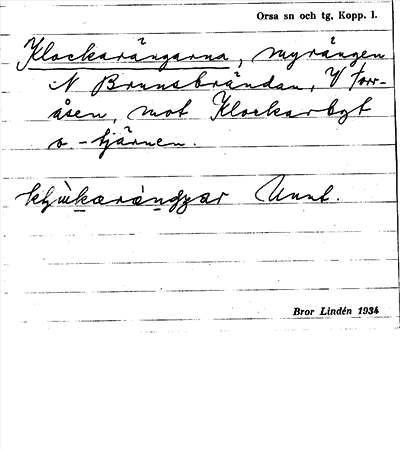 Orsa sn och tg, Kopp. l.
Klockarängarna, myrängen
N Brunsbrändan, V Torr-
åsen, mot Klockarbyt
o - tjärnen.
Unnt.
Bror Lindén 1934